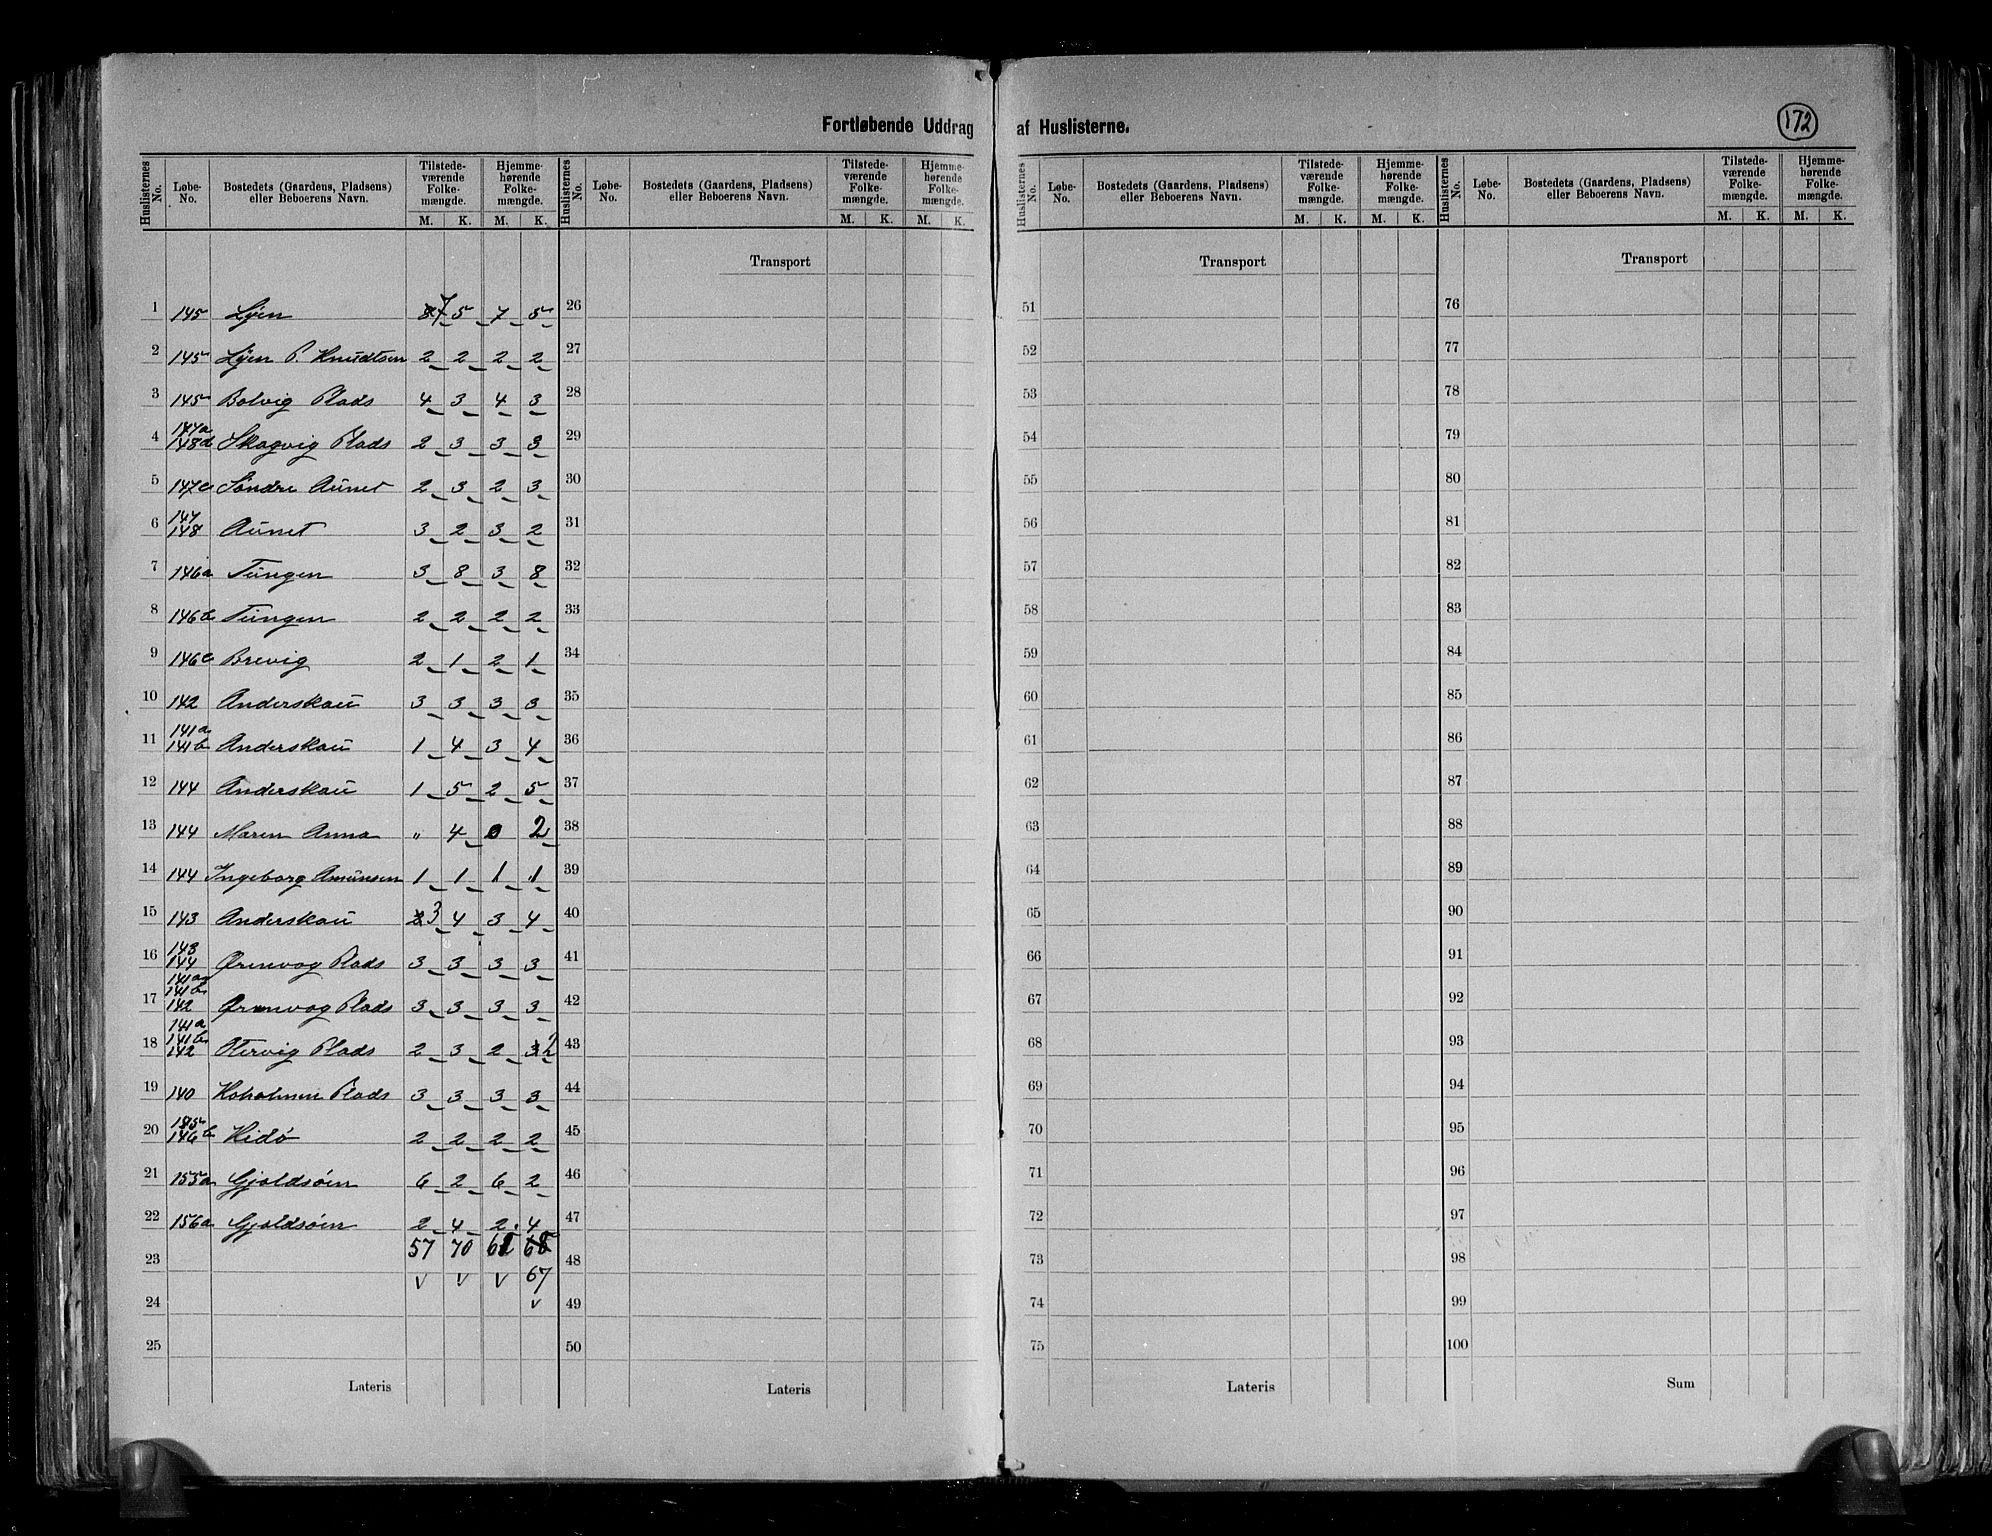 Fortløbende Uddrag af Huslisterne.
172
Huslisternes No. Løbe-No. Bostedets (Gaardens, Pladsens) eller Beboerens Navn. Tilstedeværende Folkemængde. M. K. Hjemmehørende Folkemængde. M. K.
Huslisternes No. Løbe-No. Bostedets (Gaardens, Pladsens) eller Beboerens Navn. Tilstedeværende Folkemængde. M. K. Hjemmehørende Folkemængde. M. K.
Huslisternes No. Løbe-No. Bostedets (Gaardens, Pladsens) eller Beboerens Navn. Tilstedeværende Folkemængde. M. K. Hjemmehørende Folkemængde. M. K.
Huslisternes No. Løbe-No. Bostedets (Gaardens, Pladsens) eller Beboerens Navn. Tilstedeværende Folkemængde. M. K. Hjemmehørende Folkemængde. M. K.
1 145 Lyen 7 5 7 5
2 145 Lyen P. Knudtsen 2 2 2 2
3 145 Bolvig Plads 4 3 4 3
4 147a 148d Skagvig Plads 2 3 3 3
5 147c Søndre Aunet 2 3 2 3
6 147 148 Aunet 3 2 3 2
7 146a Tungen 3 8 3 8
8 146b Tungen 2 2 2 2
9 146c Brevig 2 1 2 1
10 142 Anderskau 3 3 3 3
11 141a 141b Anderskau 1 4 3 4
12 144 Anderskau 1 5 2 5
13 144 Maren Anna " 4 0 2
14 144 Ingeborg Amunsen 1 1 1 1
15 143 Anderskau 3 4 3 4
16 143 144 Ørnvog Plads 3 3 3 3
17 141a 141b 142 Ørnvog Plads 3 3 3 3
18 141a 141b 142 Hervig Plads 2 3 2 2
19 140 Koholmen Plads 3 3 3 3
20 185 146b Hidø 2 2 2 2
21 155a Gjøldsøien 6 2 6 2
22 156a Gjøldsøien 2 4 2 4
57 70 68
23
v v v 67
24 v
25
Lateris
Transport
26
27
28
29
30
31
32
33
34
35
36
37
38
39
40
41
42
43
44
45
46
47
48
49
50
Lateris
Transport
51
52
53
54
55
56
57
58
59
60
61
62
63
64
65
66
67
68
69
70
71
72
73
74
75
Lateris
Transport
76
77
78
79
80
81
82
83
84
85
86
87
88
89
90
91
92
93
94
95
96
97
98
99
100
Sum